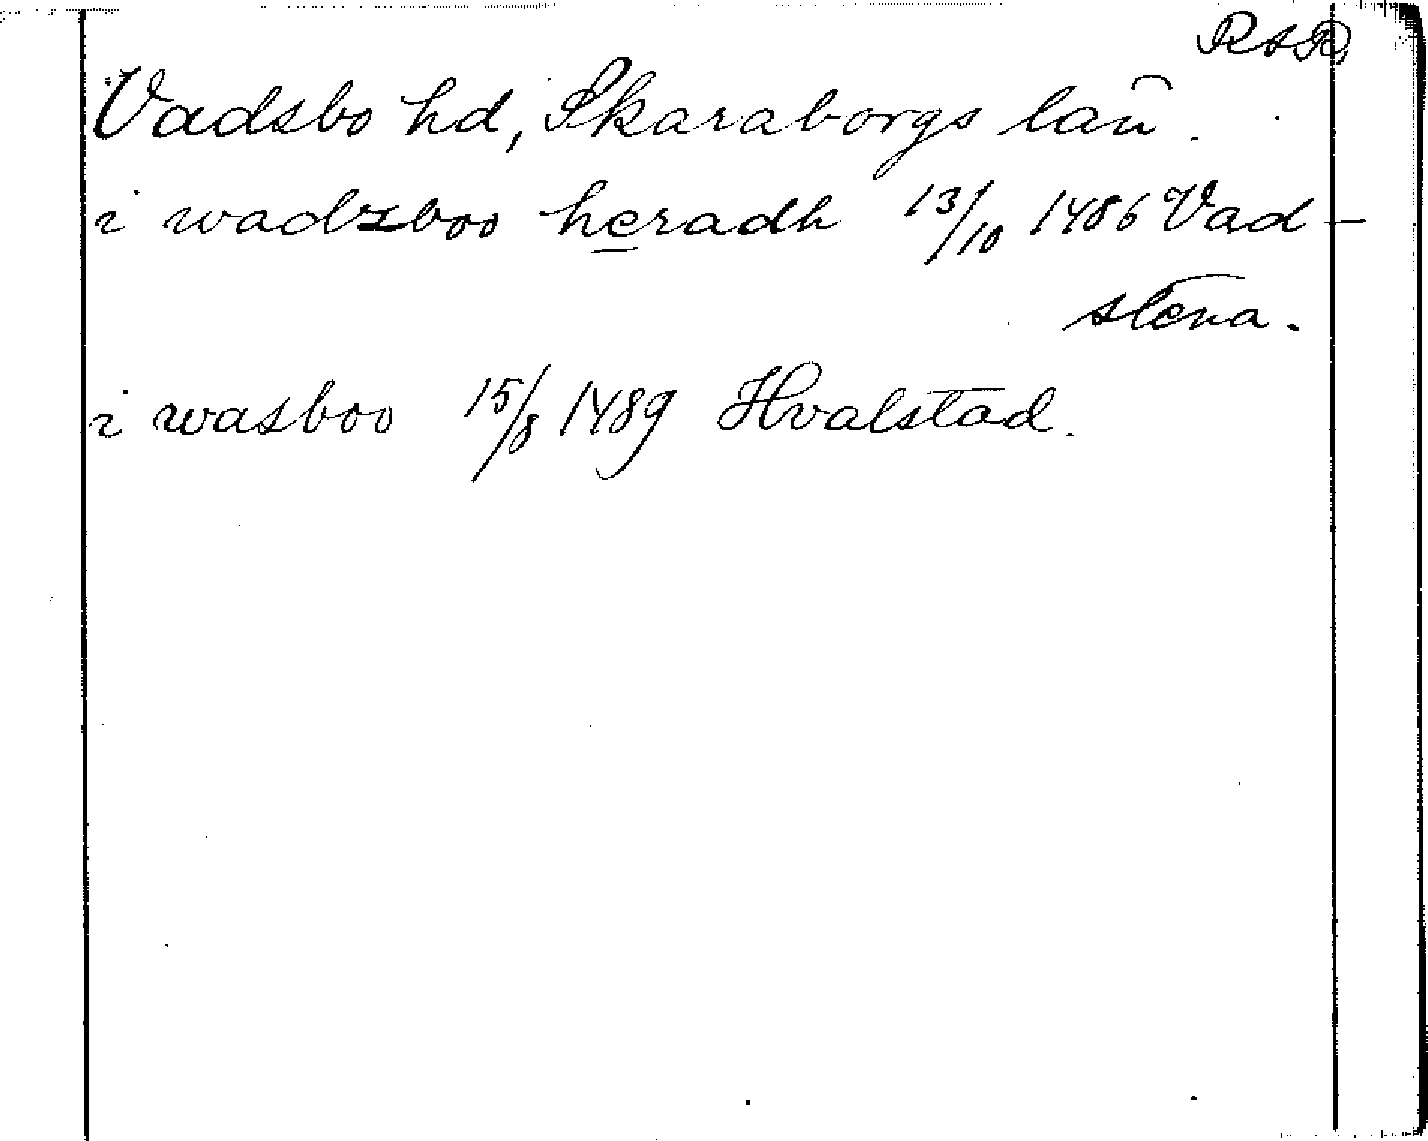 RAR
Vadsbo hd, Skaraborgs län.
i wadzboo heradh 13/10 1486 Vad-
stena.
i wasboo 15/8 1489 Hvalstad.